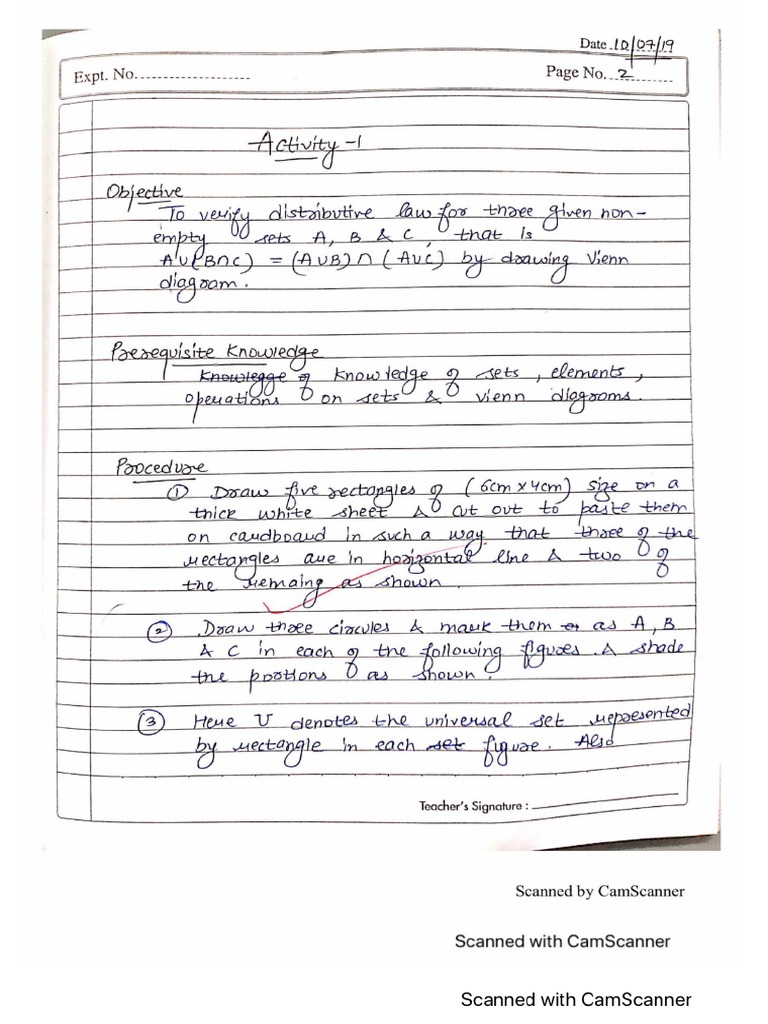 Date 10/07/19
Expt. No.
Page No. 2
Activity -1
Objective
To verify distributive law for three given non-
empty sets A, B & C, that is
A∪(B∩C) = (A∪B)∩(A∪C) by drawing Vienn
diagram.
Prerequisite Knowledge
Knowlegge of Knowledge of sets, elements,
operations on sets & vienn diagrams.
Procedure
① Draw five rectangles of (6cm x 4cm) size on a
thick white sheet & cut out to paste them
on cardboard in such a way that three of the
rectangles are in horizontal line & two of
the remaing as shown.
② Draw three circules & mark them as A, B
& C in each of the following figures. & shade
the protions as shown.
③ Here U denotes the universal set represented
by rectangle in each set figure. Also
Teacher's Signature :
Scanned by CamScanner
Scanned with CamScanner
Scanned with CamScanner